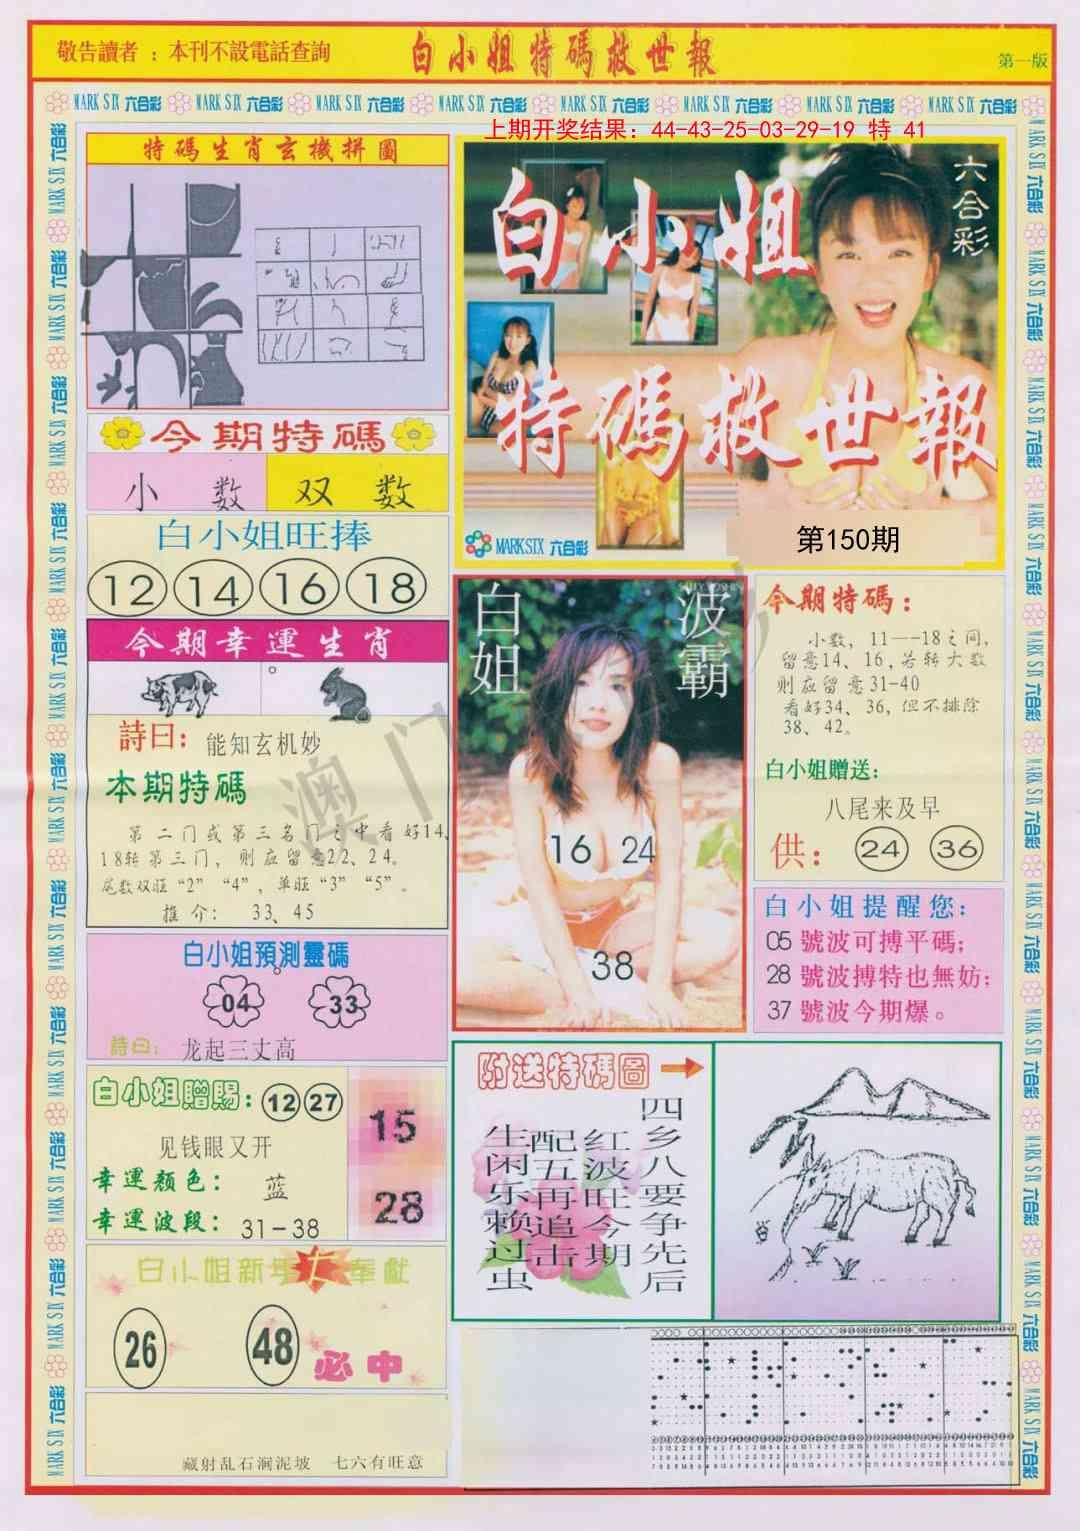 敬告讀者：本刊不設電話查詢
白小姐特碼救世報
第一版
MARK SIX 六合彩 MARK SIX 六合彩 MARK SIX 六合彩 MARK SIX 六合彩 MARK SIX 六合彩 MARK SIX 六合彩 MARK SIX 六合彩 MARK SIX 六合彩
上期开奖结果：44-43-25-03-29-19 特 41
特碼生肖玄機拼圖
六合彩
白小姐
特碼救世報
MARK SIX 六合彩
第150期
今期特碼
小数 双数
白小姐旺捧
12 14 16 18
今期幸運生肖
詩曰：能知玄机妙
本期特碼
第二门或第三名门之中看好14、
18转第三门，则应留意22、24。
尾数双旺“2”“4”，单旺“3”“5”。
推介： 33、45
白小姐預測靈碼
04 33
詩曰： 龙起三丈高
白小姐贈賜：12 27
见钱眼又开
幸運顏色： 蓝
幸運波段： 31-38
15
28
白小姐新 奉獻
26 48 必中
藏射乱石涧泥坡 七六有旺意
白姐
波霸
16 24
38
今期特碼：
小数，11—18之间，
留意14、16，若转大数
则应留意31-40
看好34、36，但不排除
38、42。
白小姐贈送：
八尾来及早
供： 24 36
白小姐提醒您：
05 號波可搏平碼；
28 號波搏特也無妨；
37 號波今期爆。
附送特碼圖
四乡八要争先后
红波旺今期
配五再追击
生闲乐赖过虫
澳门